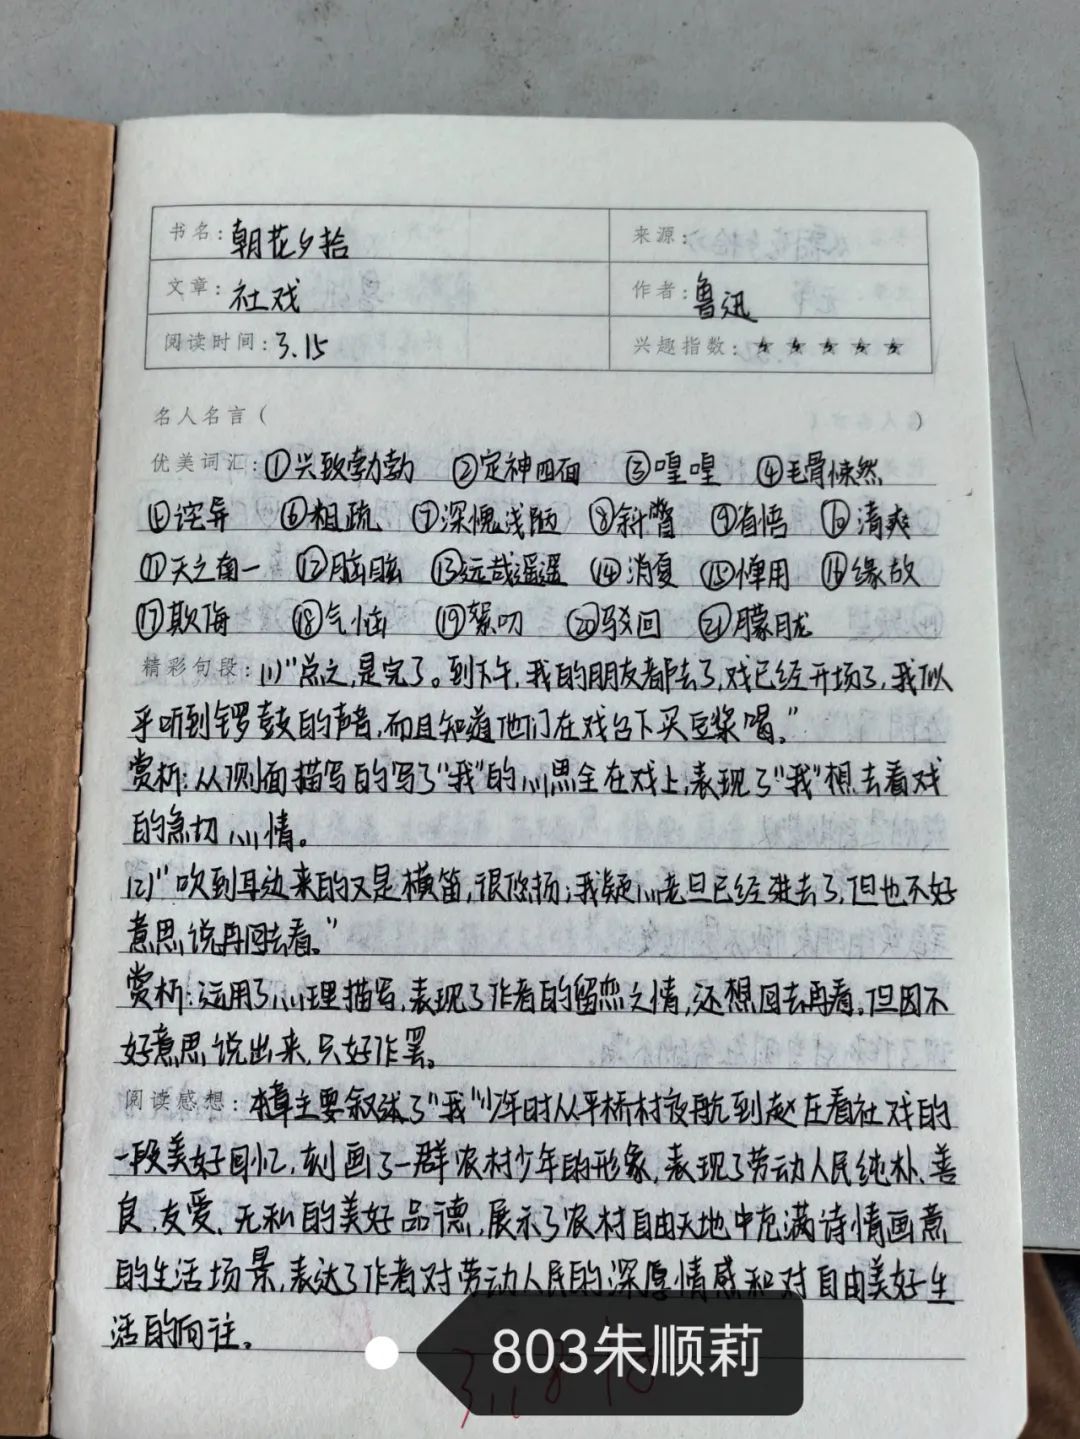 书名：朝花夕拾 来源：
文章：社戏 作者：鲁迅
阅读时间：3.15 兴趣指数：★★★★★
名人名言（ ）
优美词汇：①兴致勃勃 ②定神四面 ③喤喤 ④毛骨悚然
⑤诧异 ⑥粗疏 ⑦深愧浅陋 ⑧斜瞥 ⑨省悟 ⑩清爽
⑪天之南一 ⑫脑眩 ⑬远哉遥遥 ⑭消夏 ⑮惮用 ⑯缘故
⑰欺侮 ⑱气恼 ⑲絮叨 ⑳驳回 ㉑朦胧
精彩句段：(1)“总之，是完了。到下午，我的朋友都去了，戏已经开场了，我似
乎听到锣鼓的声音，而且知道他们在戏台下买豆浆喝。”
赏析：从侧面描写的写了“我”的心思全在戏上，表现了“我”想去看戏
的急切心情。
(2)“吹到耳边来的又是横笛，很悠扬；我疑心老旦已经进去了，但也不好
意思说再回去看。”
赏析：运用了心理描写，表现了作者的留恋之情，还想回去再看，但因不
好意思说出来，只好作罢。
阅读感想：本章主要叙述了“我”少年时从平桥村夜航到赵庄看社戏的
一段美好回忆，刻画了一群农村少年的形象，表现了劳动人民纯朴、善
良、友爱、无私的美好品德，展示了农村自由天地中充满诗情画意
的生活场景，表达了作者对劳动人民的深厚情感和对自由美好生
活的向往。
803朱顺莉